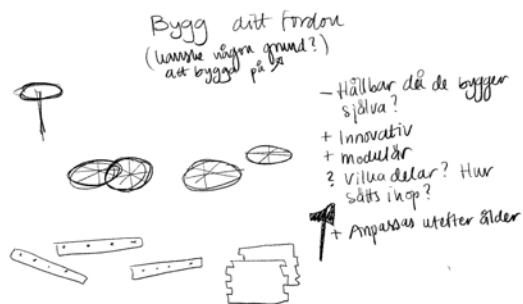 Bygg ditt fordon
(kanske några grund?)
att bygga på
- Hållbar då de bygger
själva?
+ Innovativ
+ modulär
? vilka delar? Hur
sätts ihop?
+ Anpassas utefter ålder